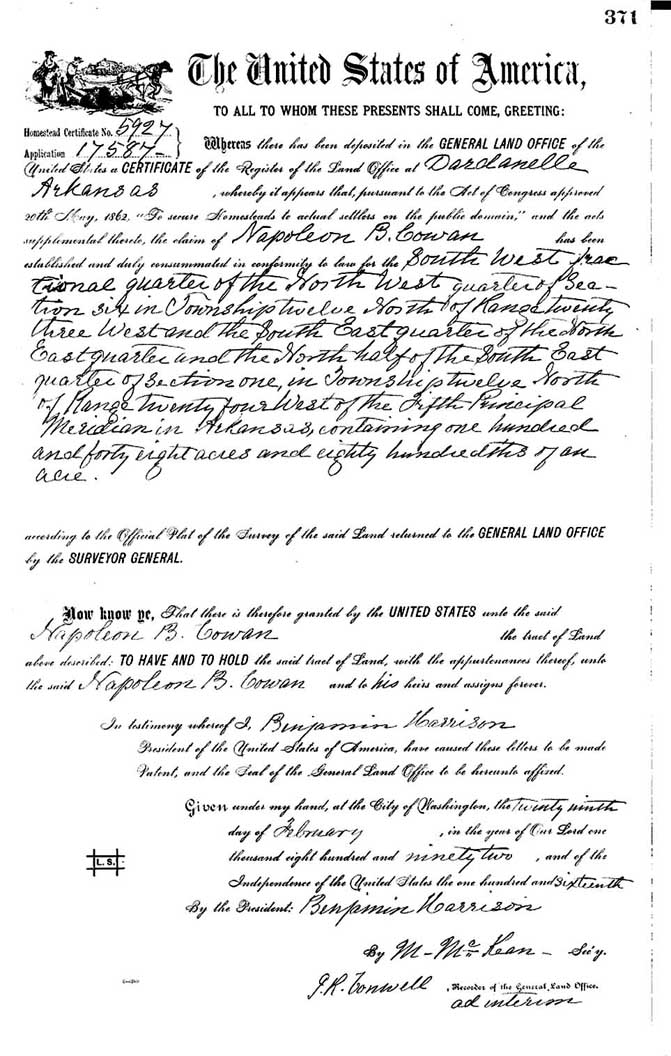 371
The United States of America,
TO ALL TO WHOM THESE PRESENTS SHALL COME, GREETING:
Homestead Certificate No. 5927
Application 17587
Whereas there has been deposited in the GENERAL LAND OFFICE of the
United States a CERTIFICATE of the Register of the Land Office at Dardanelle
Arkansas , whereby it appears that, pursuant to the Act of Congress approved
20th May, 1862, "To secure Homesteads to actual settlers on the public domain," and the acts
supplemental thereto, the claim of Napoleon B. Cowan has been
established and duly consummated in conformity to law for the South West frac
tional quarter of the North West quarter of Sec-
tion six in Township twelve North of Range twenty
three West and the South East quarter of the North
East quarter and the North half of the South East
quarter of Section one, in Township twelve North
of Range twenty four West of the Fifth Principal
Meridian in Arkansas, containing one hundred
and forty eight acres and eighty hundredths of an
acre.
according to the Official Plat of the Survey of the said Land returned to the GENERAL LAND OFFICE
by the SURVEYOR GENERAL.
Now know ye, That there is therefore granted by the UNITED STATES unto the said
Napoleon B. Cowan the tract of Land
above described: TO HAVE AND TO HOLD the said tract of Land, with the appurtenances thereof, unto
the said Napoleon B. Cowan and to his heirs and assigns forever.
In testimony whereof I, Benjamin Harrison
President of the United States of America, have caused these letters to be made
Patent, and the Seal of the General Land Office to be hereunto affixed.
Given under my hand, at the City of Washington, the twenty ninth
day of February , in the year of Our Lord one
thousand eight hundred and ninety two , and of the
Independence of the United States the one hundred and sixteenth
L. S.
By the President: Benjamin Harrison
By M. McKean Sec'y.
J. R. Conwell , Recorder of the General Land Office.
ad interim